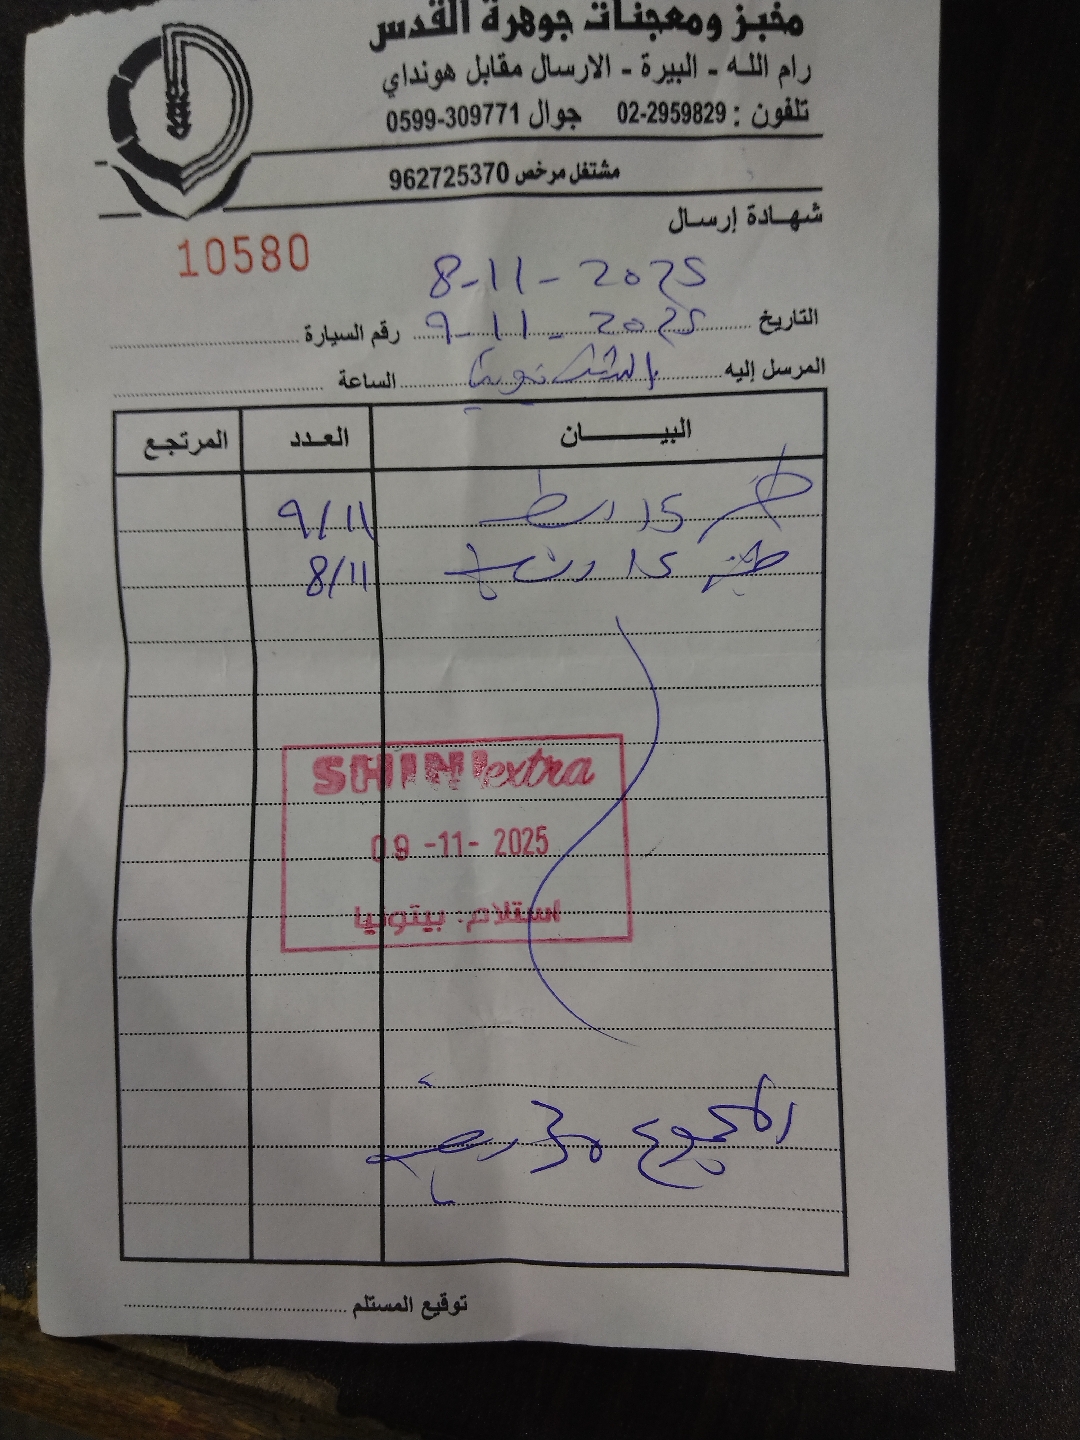 مخبز ومعجنات جوهرة القدس
رام الله - البيرة - الارسال مقابل هونداي
تلفون : 02-2959829 جوال 0599-309771
مشتغل مرخص 962725370
شهادة إرسال
10580
8-11-2025
التاريخ 9-11-2025 رقم السيارة
المرسل إليه الساعة
البيـــــان العدد المرتجع
15 9/11
15 8/11
SHINI extra
09-11-2025
استلام. بيتونيا
المجموع
توقيع المستلم